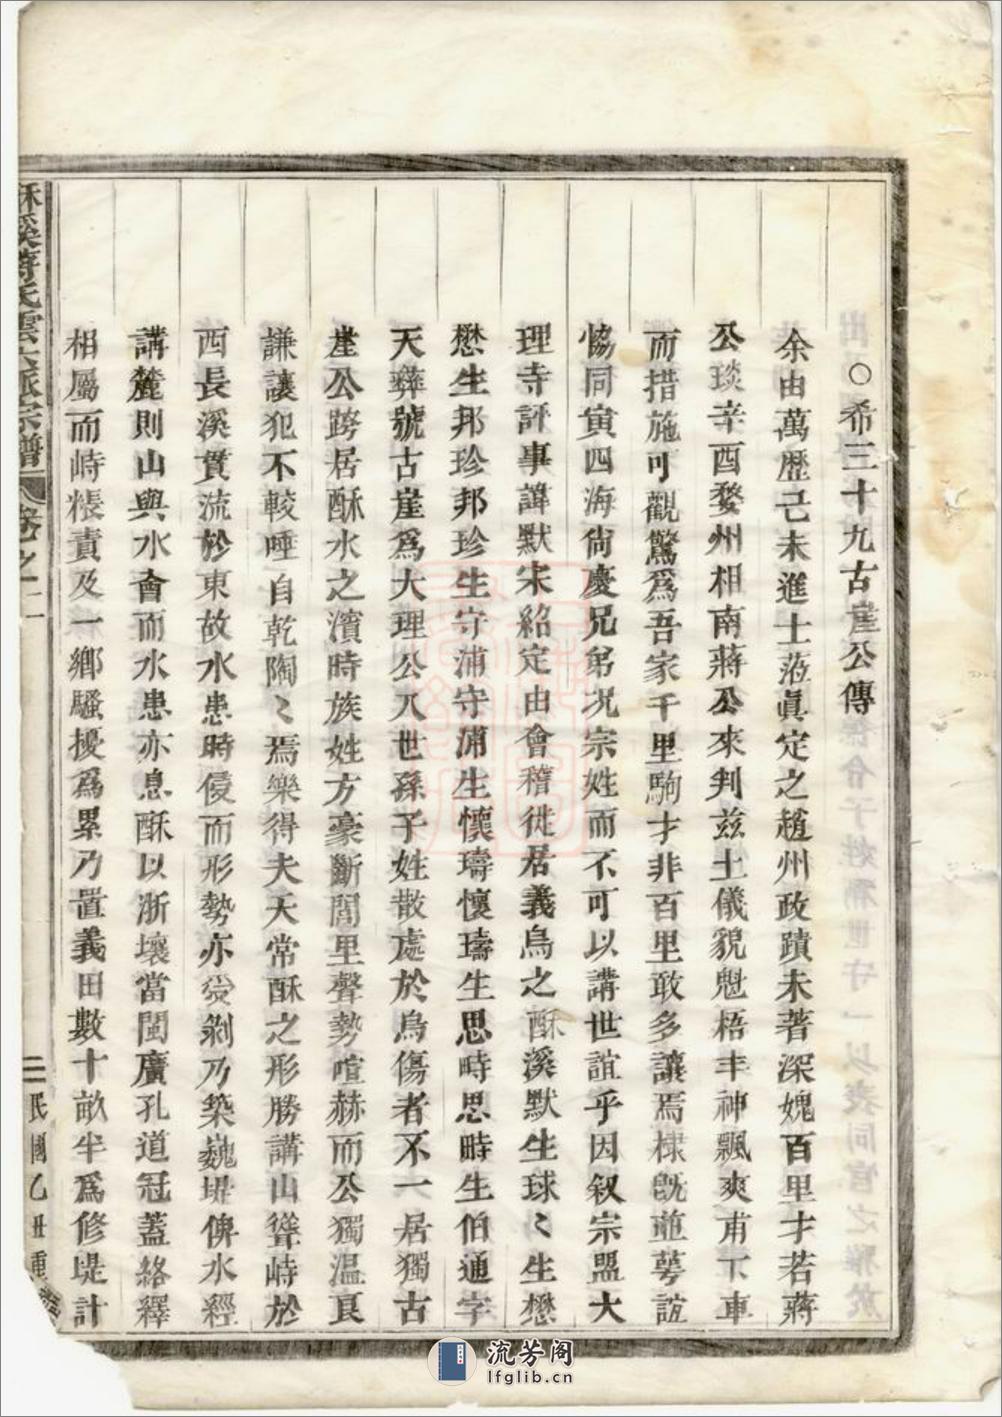 ○希三十九古崖公傳
余由萬歷己未進士蒞眞定之趙州政蹟未著深媿百里才若蔣
公琰辛酉婺州相南蔣公來判兹土儀貌魁梧丰神飄爽甫下車
而措施可觀驚爲吾家千里駒才非百里敢多讓焉棣既並萼誼
恊同寅四海尙慶兄弟况宗姓而不可以講世誼乎因叙宗盟大
理寺評事諱默宋紹定由會稽徙居義烏之酥溪默生球〻生懋
懋生邦珍邦珍生守浦守浦生懷璹懷璹生思時思時生伯通字
天彝號古崖爲大理公八世孫子姓散處於烏傷者不一居獨古
崖公跨居酥水之濱時族姓方豪斷閭里聲勢喧赫而公獨温良
謙讓犯不較唾自乾陶〻焉樂得夫天常酥之形勝講山聳峙於
西長溪貫流於東故水患時侵而形勢亦受剝乃築巍堤俾水經
講麓則山與水會而水患亦息酥以浙壤當閩廣孔道冠蓋絡繹
相屬而峙粻責及一鄉騷擾爲累乃置義田數十畝半爲修堤計
酥溪蔣氏雲六派宗譜 卷之二 二 民國乙丑重
流芳阁
lfglib.cn